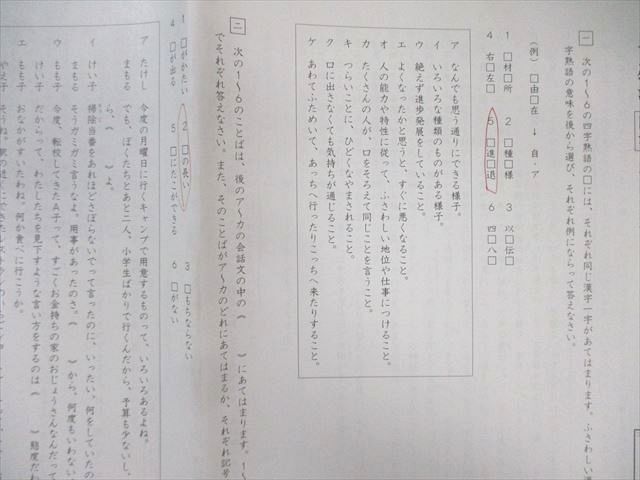 一 次の1〜6の四字熟語の□には、それぞれ同じ漢字一字があてはまります。ふさわしい漢
字熟語の意味を後から選び、それぞれ例にならって答えなさい。
(例) □由□在 → 自・ア
1 □材□所 2 □種□様 3 以□伝□
4 右□左□ 5 □進□退 6 四□八□
ア なんでも思う通りにできる様子。
イ いろいろな種類のものがある様子。
ウ 絶えず進歩発展をしていること。
エ よくなったかと思うと、すぐに悪くなること。
オ 人の能力や特性に従って、ふさわしい地位や仕事につけること。
カ たくさんの人が、口をそろえて同じことを言うこと。
キ つらいことに、ひどくなやまされること。
ク 口に出さなくても気持ちが通じること。
ケ あわてふためいて、あっちへ行ったりこっちへ来たりすること。
二 次の1〜6のことばは、後のア〜カの会話文の中の( )にあてはまります。1〜
でそれぞれ答えなさい。また、そのことばがア〜カのどれにあてはまるか、それぞれ記号
1 □がかたい 2 □の長い 3 □もちならない
4 □が出る 5 □にたこができる 6 □がない
ア たけし 今度の月曜日に行くキャンプで用意するものって、いろいろあるよね。
まもる でも、ぼくたちとあと二人、小学生ばかりで行くんだから、予算も少ないし、
ら、( )よ。
イ けい子 掃除当番をあれほどさぼらないでって言ったのに、いったい、何をしていたの
まもる そうガミガミと言うなよ。用事があったのさ。( )から、何度もいわない
ウ もも子 今度、転校してきたA子って、すごくお金持ちの家のおじょうさんなんだって
けい子 だからって、わたしたちを見下すような言い方をするのは( )態度だわ
エ もも子 おなかがすいたわね。何か食べに行こうか。
やえ子 そうね。駅の近くに